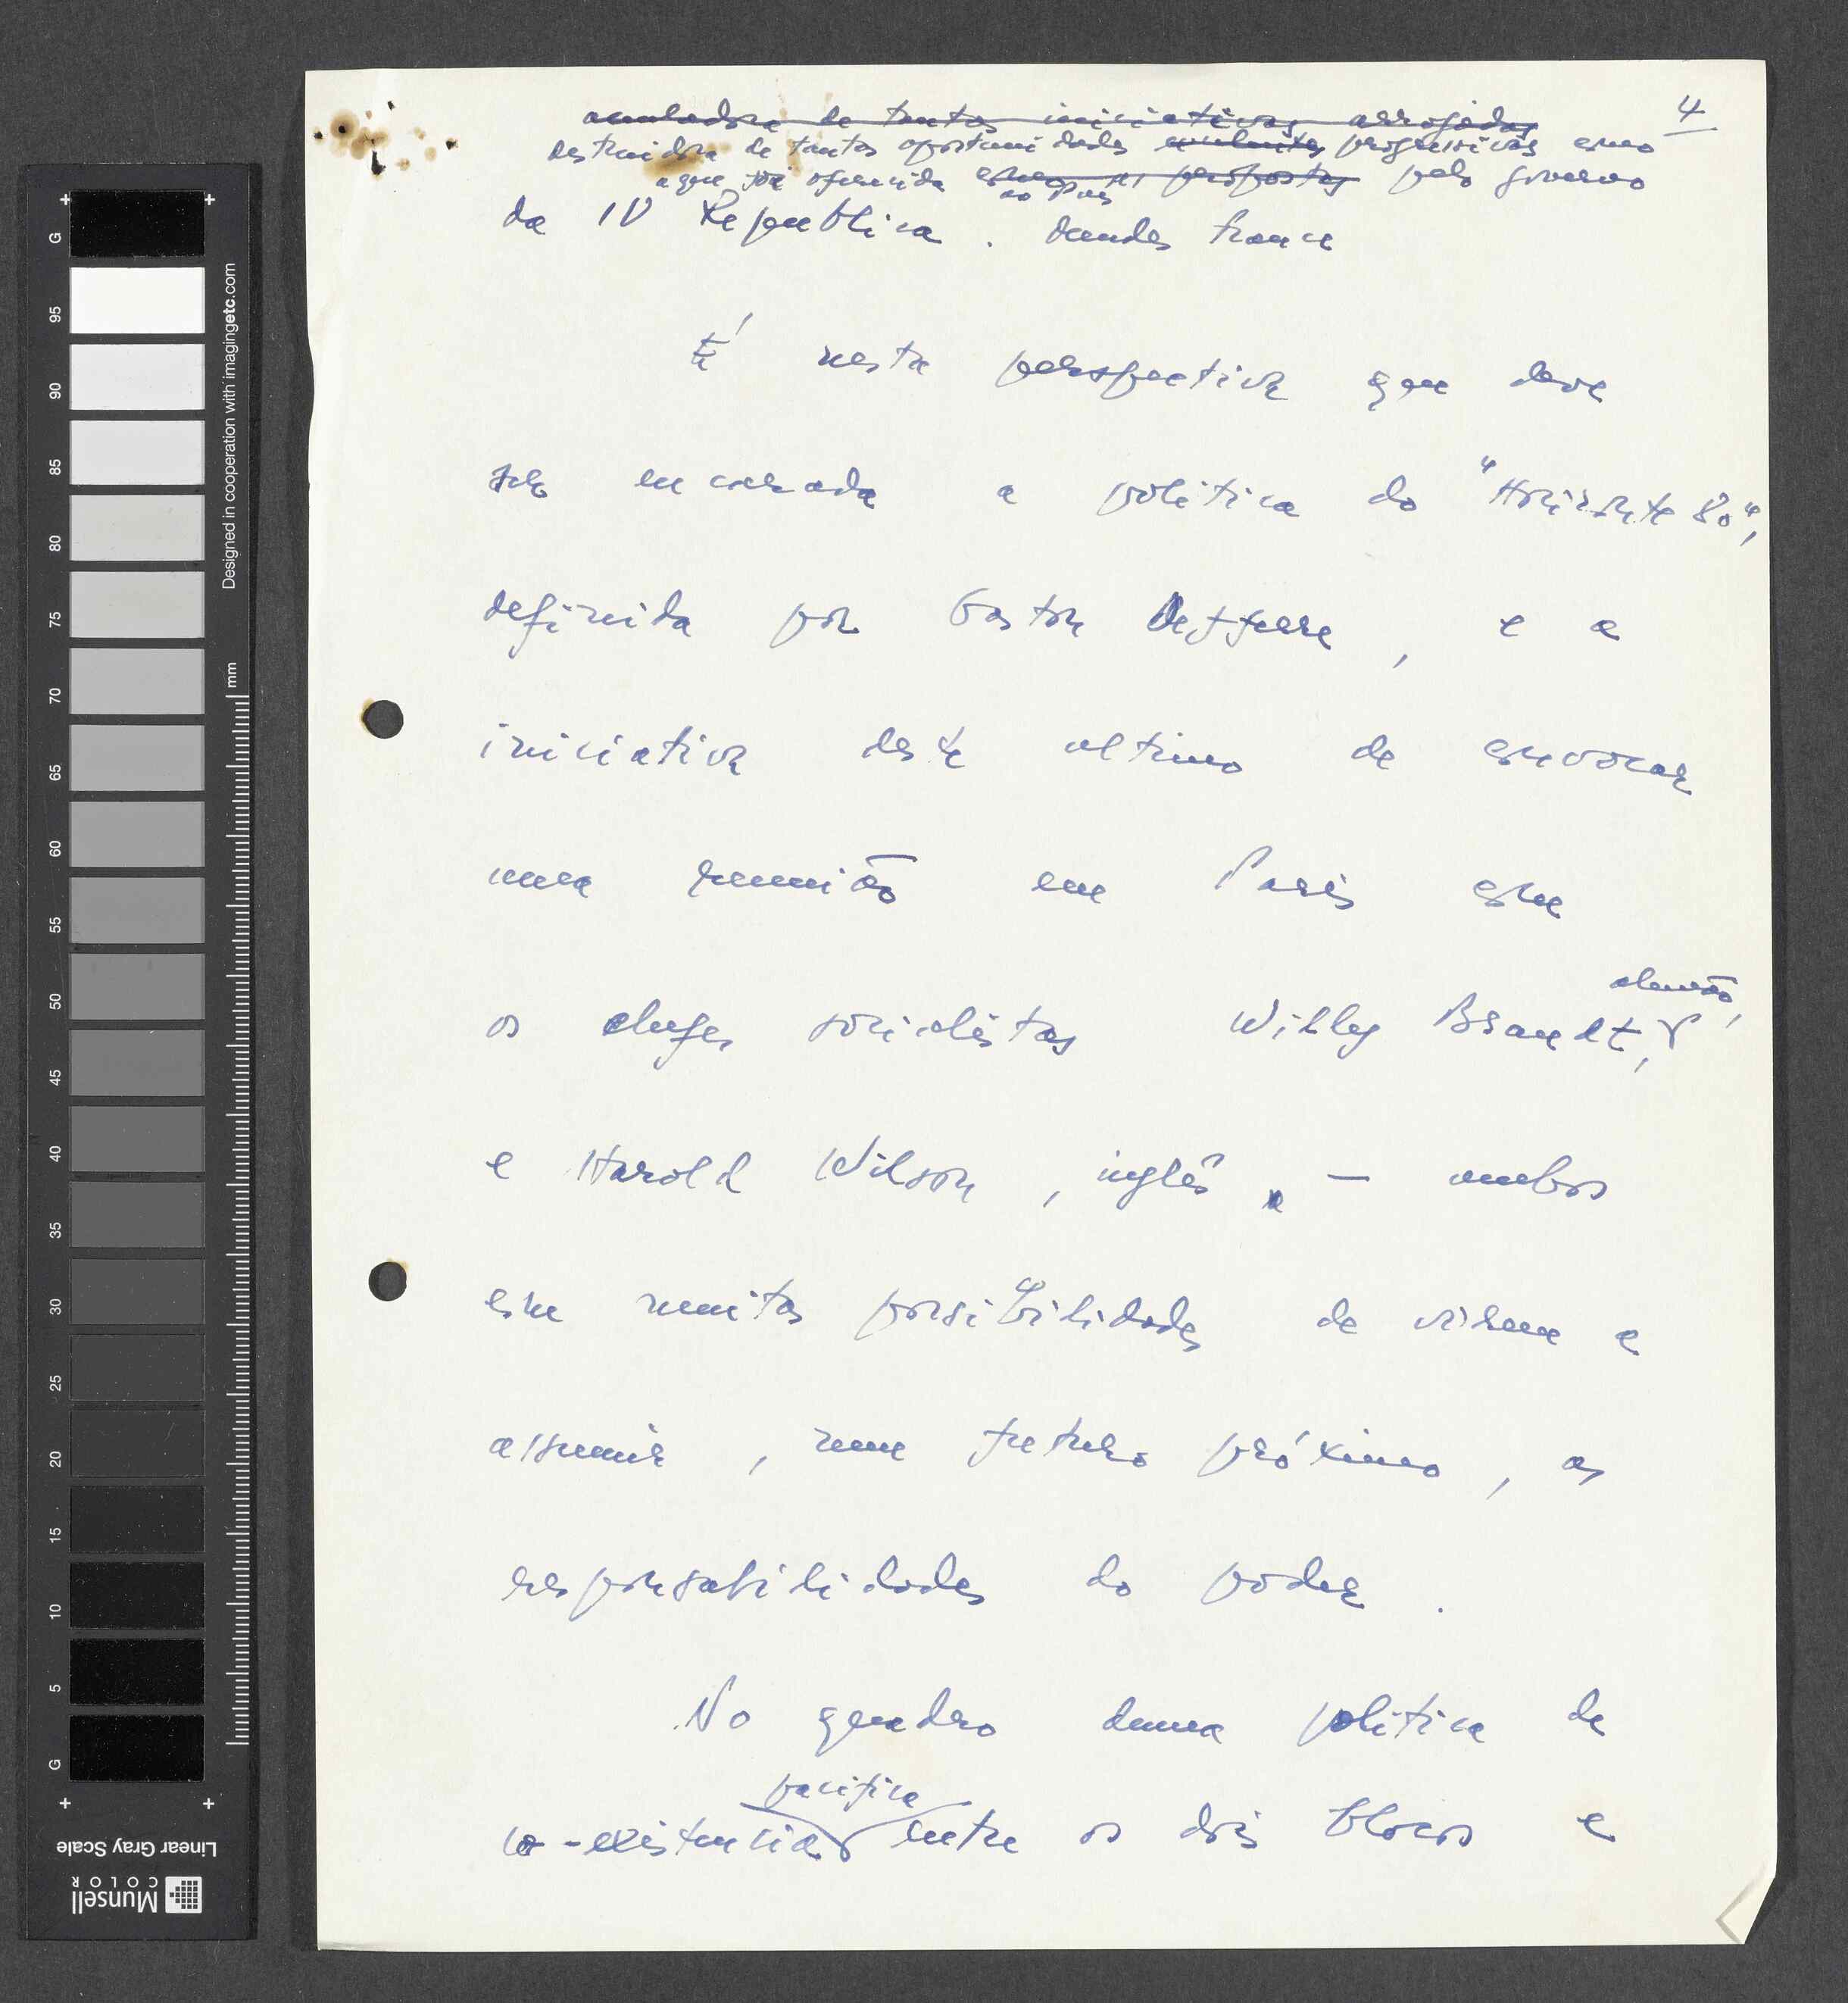 4
anuladora de tantas iniciativas arrojadas
destruidora de tantas oportunidades progressivas como
a que foi oferecida ao País as propostas pelo governo
da IV Republica. Mendes France
É nesta perspectiva que deve
ser encarada a politica do "Horizonte 80",
definida por Gaston Defferre, e a
iniciativa deste ultimo de convocar
uma reunião em Paris com
alemão,
os chefes socialistas Willy Brandt,
e Harold Wilson, inglês, — ambos
com muitas possibilidades de virem a
assumir, num futuro próximo, as
responsabilidades do poder.
No quadro duma politica de
pacifica
co-existencia entre os dois blocos e
G
95
90
85
80
75
70
65
60
55
50
45
40
35
30
25
20
15
10
5
G
mm
Designed in cooperation with imagingetc.com
Linear Gray Scale
Munsell
COLOR